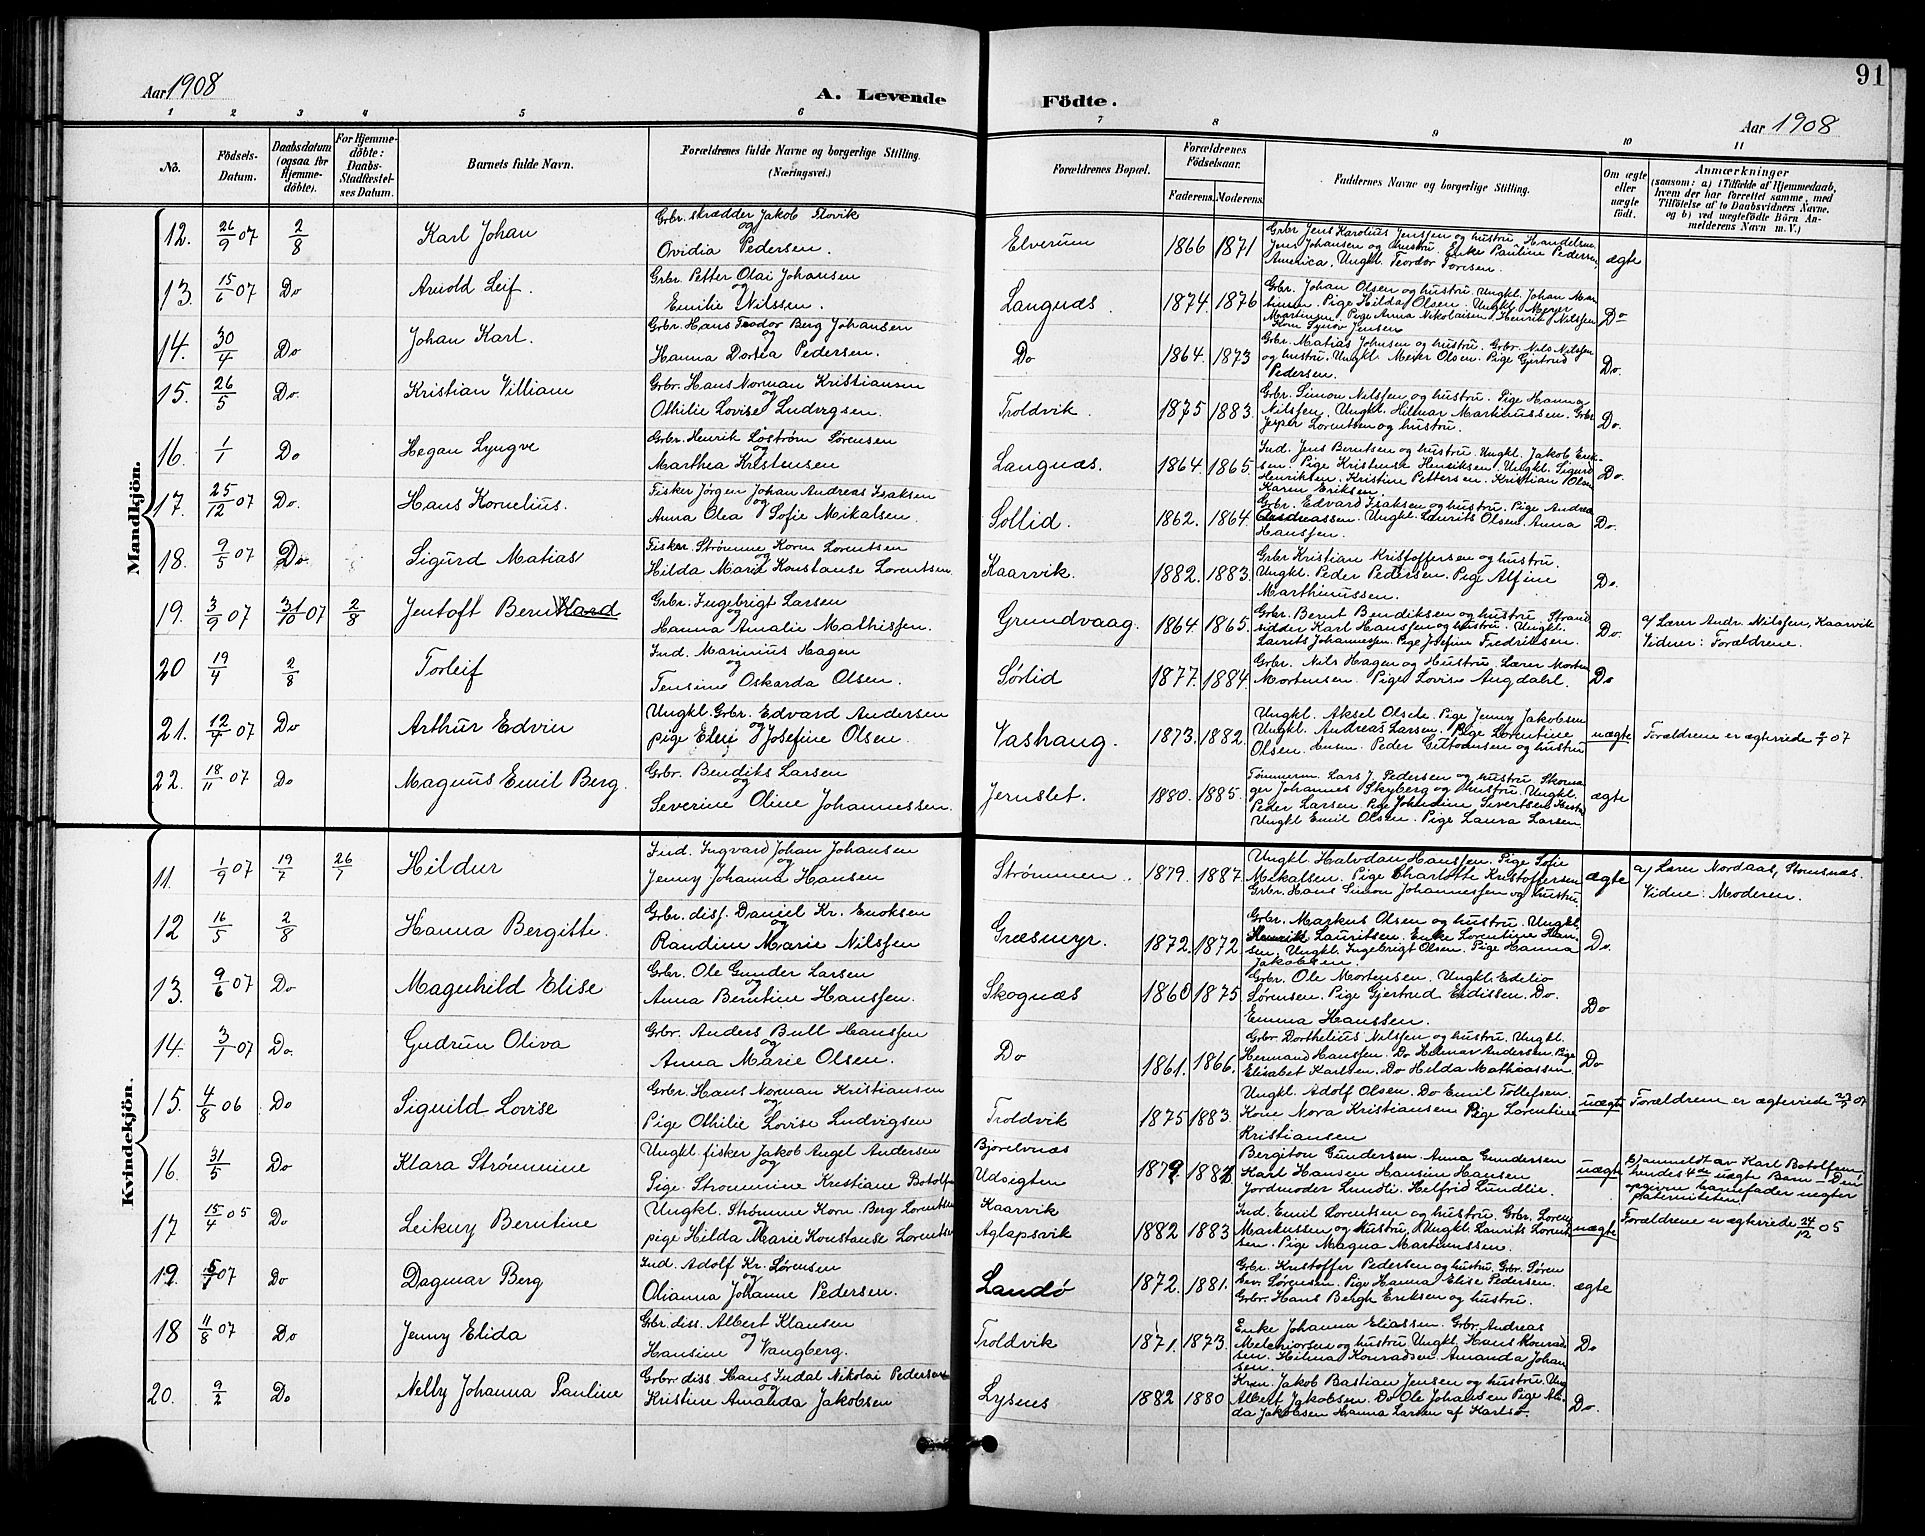 Aar 1908
A. Levende
Födte.
91
Aar 1908
1 2 3 4 5 6 7 8 9 10 11
No.
Födsels-
Datum.
Daabsdatum
(ogsaa for
Hjemme-
döbte).
For Hjemme-
döbte:
Daabs-
Stadfæstel-
ses Datum.
Barnets fulde Navn.
Forældrenes fulde Navne og borgerlige Stilling.
(Næringsvei.)
Forældrenes Bopæl.
Forældrenes
Födselsaar.
Faderens. Moderens.
Faddernes Navne og borgerlige Stilling.
Om ægte
eller
uægte
födt.
Anmærkninger
(saasom: a) i Tilfælde af Hjemmedaab,
hvem der har forrettet samme, med
Tilföielse af to Daabsvidners Navne,
og b) ved uægtefödte Börn An-
melderens Navn m. V.)
Mandkjön.
12. 26/9 07 2/8 Karl Johan
Grbr. skrædder Jakob Flovik
og
Ovidia Pedersen.
Elverum 1866 1871
Grbr Jens Karolius Jenssen og hustru Handelsm.
Jens Johansen og Hustru Enke Pauline Pedersen
America. Ungkl. Teodor Toresen.
ægte
13. 15/6 07 Do Arnold Leif.
Grbr. Petter Olai Johansen
og
Emilie Nilssen.
Langnæs 1874. 1876
Grbr. Johan Olsen og hustru. Ungkl. Johan Mar-
tinsen. Pige Hilda Olsen. Ungkl. Meyer
Martinsen. Pige Anna Nikolaisen, Henrik Nilssen
Kone Synøv Jensen
Do
14. 30/4 Do Johan Karl.
Grbr. Hans Teodor Berg Johansen
og
Hanna Dorea Pedersen.
Do 1864. 1873
Grbr. Matias Johnsen og hustru. Grbr. Nils Nilssen
og hustru. Ungkl. Meier Olsen. Pige Gjertrud
Pedersen.
Do.
15. 26/5 Do. Kristian Villiam
Grbr. Hans Norman Kristiansen
og
Othilie Lovise Ludvigsen.
Troldvik. 1875 1883.
Grbr. Simon Nilssen og hustru. Pige Hanna
Nilssen. Ungkl. Hilmar Martinussen. Grbr
Jesper Lorentsen og hustru.
Do.
16. 1/1 Do Hegan Lyngve
Grbr. Henrik Løstrøm Sørensen
og
Marthea Kristensen
Langnæs. 1864. 1865.
Ind. Jens Berntsen og hustru. Ungkl. Jakob Erik-
sen. Pige Kristensk Henriksen. Ungkl. Sigurd
Henriksen. Kristine Pettersen. Kristian Olsen
Karen Eriksen.
Do.
17. 25/12 07 Do. Hans Kornelius.
Fisker Jørgen Johan Andreas Isaksen
og
Anna Olea Sofie Mikalsen.
Sollid. 1862. 1864.
Grbr. Edvard Isaksen og hustru. Pige Andrea
Andreassen. Ungkl. Laurits Olsen. Anna
Hanssen.
Do.
18. 9/5 07 Do Sigurd Matias
Fisker Strømme Korn Lorentsen
og
Hilda Marie Konstanse Lorentsen.
Kaarvik. 1882. 1883.
Grbr Kristian Kristoffersen og hustru.
Ungkl. Peder Pedersen. Pige Alfine
Marthinussen.
Do.
19. 3/9 07 31/10 07 2/8 Jentoft Bernhard
Grbr. Ingebrigt Larsen
og
Hanna Amalie Mathissen.
Grundvaag. 1864. 1865.
Grbr. Bernt Bendiksen og hustru. Strand-
sidder Karl Hanssen og hustru. Ungkl.
Laurits Johannessen. Pige Josefine Fredriksen.
Do.
a/ Lærer Andr. Nilssen, Kaarvik
Vidner: Forældrene.
20 19/4 2/8 Torleif
Ind. Marinius Hagen
og
Tensine Oskarda Olsen.
Sørlid 1877. 1884.
Grbr. Nils Hagen og Hustru. Lærer Morten
Mortensen. Pige Lovise Angdahl.
Do
21. 12/4 07 Do Arthur Edvin
Ungkl. Grbr. Edvard Andersen
og
pige Elen Josefine Olsen.
Vashaug. 1873. 1882.
Ungkl. Aksel Olsen. Pige Jenny Jakobsen
Ungkl. Andreas Larsen. Pige Lorentine
Olsen. Peder Gittonsen og hustru
uægte
Forældrene er ægteviede 07
22. 18/11 07 Do Magnus Emil Berg.
Grbr. Bendiks Larsen
og
Severine Oline Johannessen.
Jernslet. 1880. 1885.
Tømmerm. Lars J. Pedersen og hustru. Skoma-
ger Johannes Skyberg og hustru. Ungkl.
Peder Larsen. Pige Johndine Sivertsen
Ungkl Emil Olsen. Pige Laura Larsen
ægte
Kvindekjön.
11. 1/9 07 19/7 26/7 Hildur
Ind. Ingvard Johan Johansen
og
Jenny Johanna Hansen
Strømmen. 1879. 1887.
Ungkl. Halvdan Hanssen. Pige Sofie
Mikalsen. Pige Charlotte Kristoffersen
Grbr. Hans Simon Johannessen og hustru
ægte
a/ Lærer Nordaas, Stonsnæs.
Vidne: Moderen.
12 16/5 2/8 Hanna Bergitte.
Grbr. diss. Daniel Kr. Enoksen
og
Randine Marie Nilssen
Græsmyr. 1872. 1872.
Grbr. Markus Olsen og hustru. Ungkl.
Henrik Lauritsen. Enke Lorentine Han-
sen. Ungkl. Ingebrigt Olsen. Pige Hanna
Jakobsen
Do.
13. 9/6 07 Do Magnhild Elise
Grbr. Ole Gunder Larsen
og
Anna Berntine Hanssen.
Skognæs 1860 1875.
Grbr. Ole Mortensen. Ungkl. Edelio
Sørensen. Pige Gjertrud Eidissen. Do.
Emma Hanssen.
Do
14. 3/1 07 Do. Gudrun Oliva
Grbr. Anders Bull Hanssen
og
Anna Marie Olsen.
Do 1861. 1866.
Grbr. Dorthelius Nilssen og hustru. Ungkl.
Hermand Hanssen. Do Helmar Andersen. Pige
Elisabet Karlsen. Do Hilda Mathiassen
Do
15. 4/8 06 Do Signild Lovise
Grbr. Hans Norman Kristiansen
og
Pige Othilie Lovise Ludvigsen
Troldvik 1875 1883.
Ungkl. Adolf Olsen. Do Emil Tollefsen.
Kone Nora Kristiansen Pige Lorentine
Kristiansen
uægte
Forældrene er ægteviede 07
16 31/5 Do Klara Strømmine
Ungkl. fisker Jakob Angel Andersen
og
Pige. Strømmine Kristiane Botolfsen
Bjorelvnæs
Udsigten
1879. 1882
Bergiton Gundersen. Anna Gundersen
Karl Hansen Hansine Hansen
Jordmoder Lundli. Helfrid Lundlie.
uægte
Ejanmeldt av Karl Botolfsen,
hendes 4de uægte Barn – Den
opgivne barnefader negter
paterniteten
17 15/4 05 Do Leikny Berntine
Ungkl. Strømme Korn. Berg Lorentsen
pige Hilda Marie Konstanse Lorentsen
Kaarvik
Aglapsvik
1882 1883
Ind. Emil Lorentsen og hustru. Grbr. Loren
Markussen og Hustru. Ungkl Laurits Lorent-
sen. Pige Magna Martinussen.
uægte
Forældrene er ægteviede 24/12 05
19. 5/1 07 Do Dagmar Berg
Ind. Adolf Kr. Sørensen
og
Olianna Johanne Pedersen.
Sandö 1872. 1881.
Grbr. Kristoffer Pedersen og hustru. Grbr. Søren
Sev. Sørensen. Pige Hanna Elise Pedersen.
Grbr. Hans Bergh Eriksen og hustru.
ægte
18 11/8 07 Do Jenny Elida
Grbr. diss. Albert Klausen
og
Hansine Vangberg.
Troldvik 1871. 1873.
Enke Johanna Eliassen. Grbr. Andreas
Melchiorsen og hustru Ungkl. Hans Konrad-
sen. Hilma Konradsen. Amanda Johan-
sen.
Do
20. 9/2 Do Nelly Johanna Pauline
Grbr. diss Hans Indal Nikolai Pedersen
og
Kristine Amanda Jakobsen
Lysnes 1882 1880
Krm. Jakob Bastian Jensen og hustru. Ung
Albert Jakobsen. Do Ole Johansen Pige Al-
da Jakobsen Hanna Larsen af Karlsö.
Do.